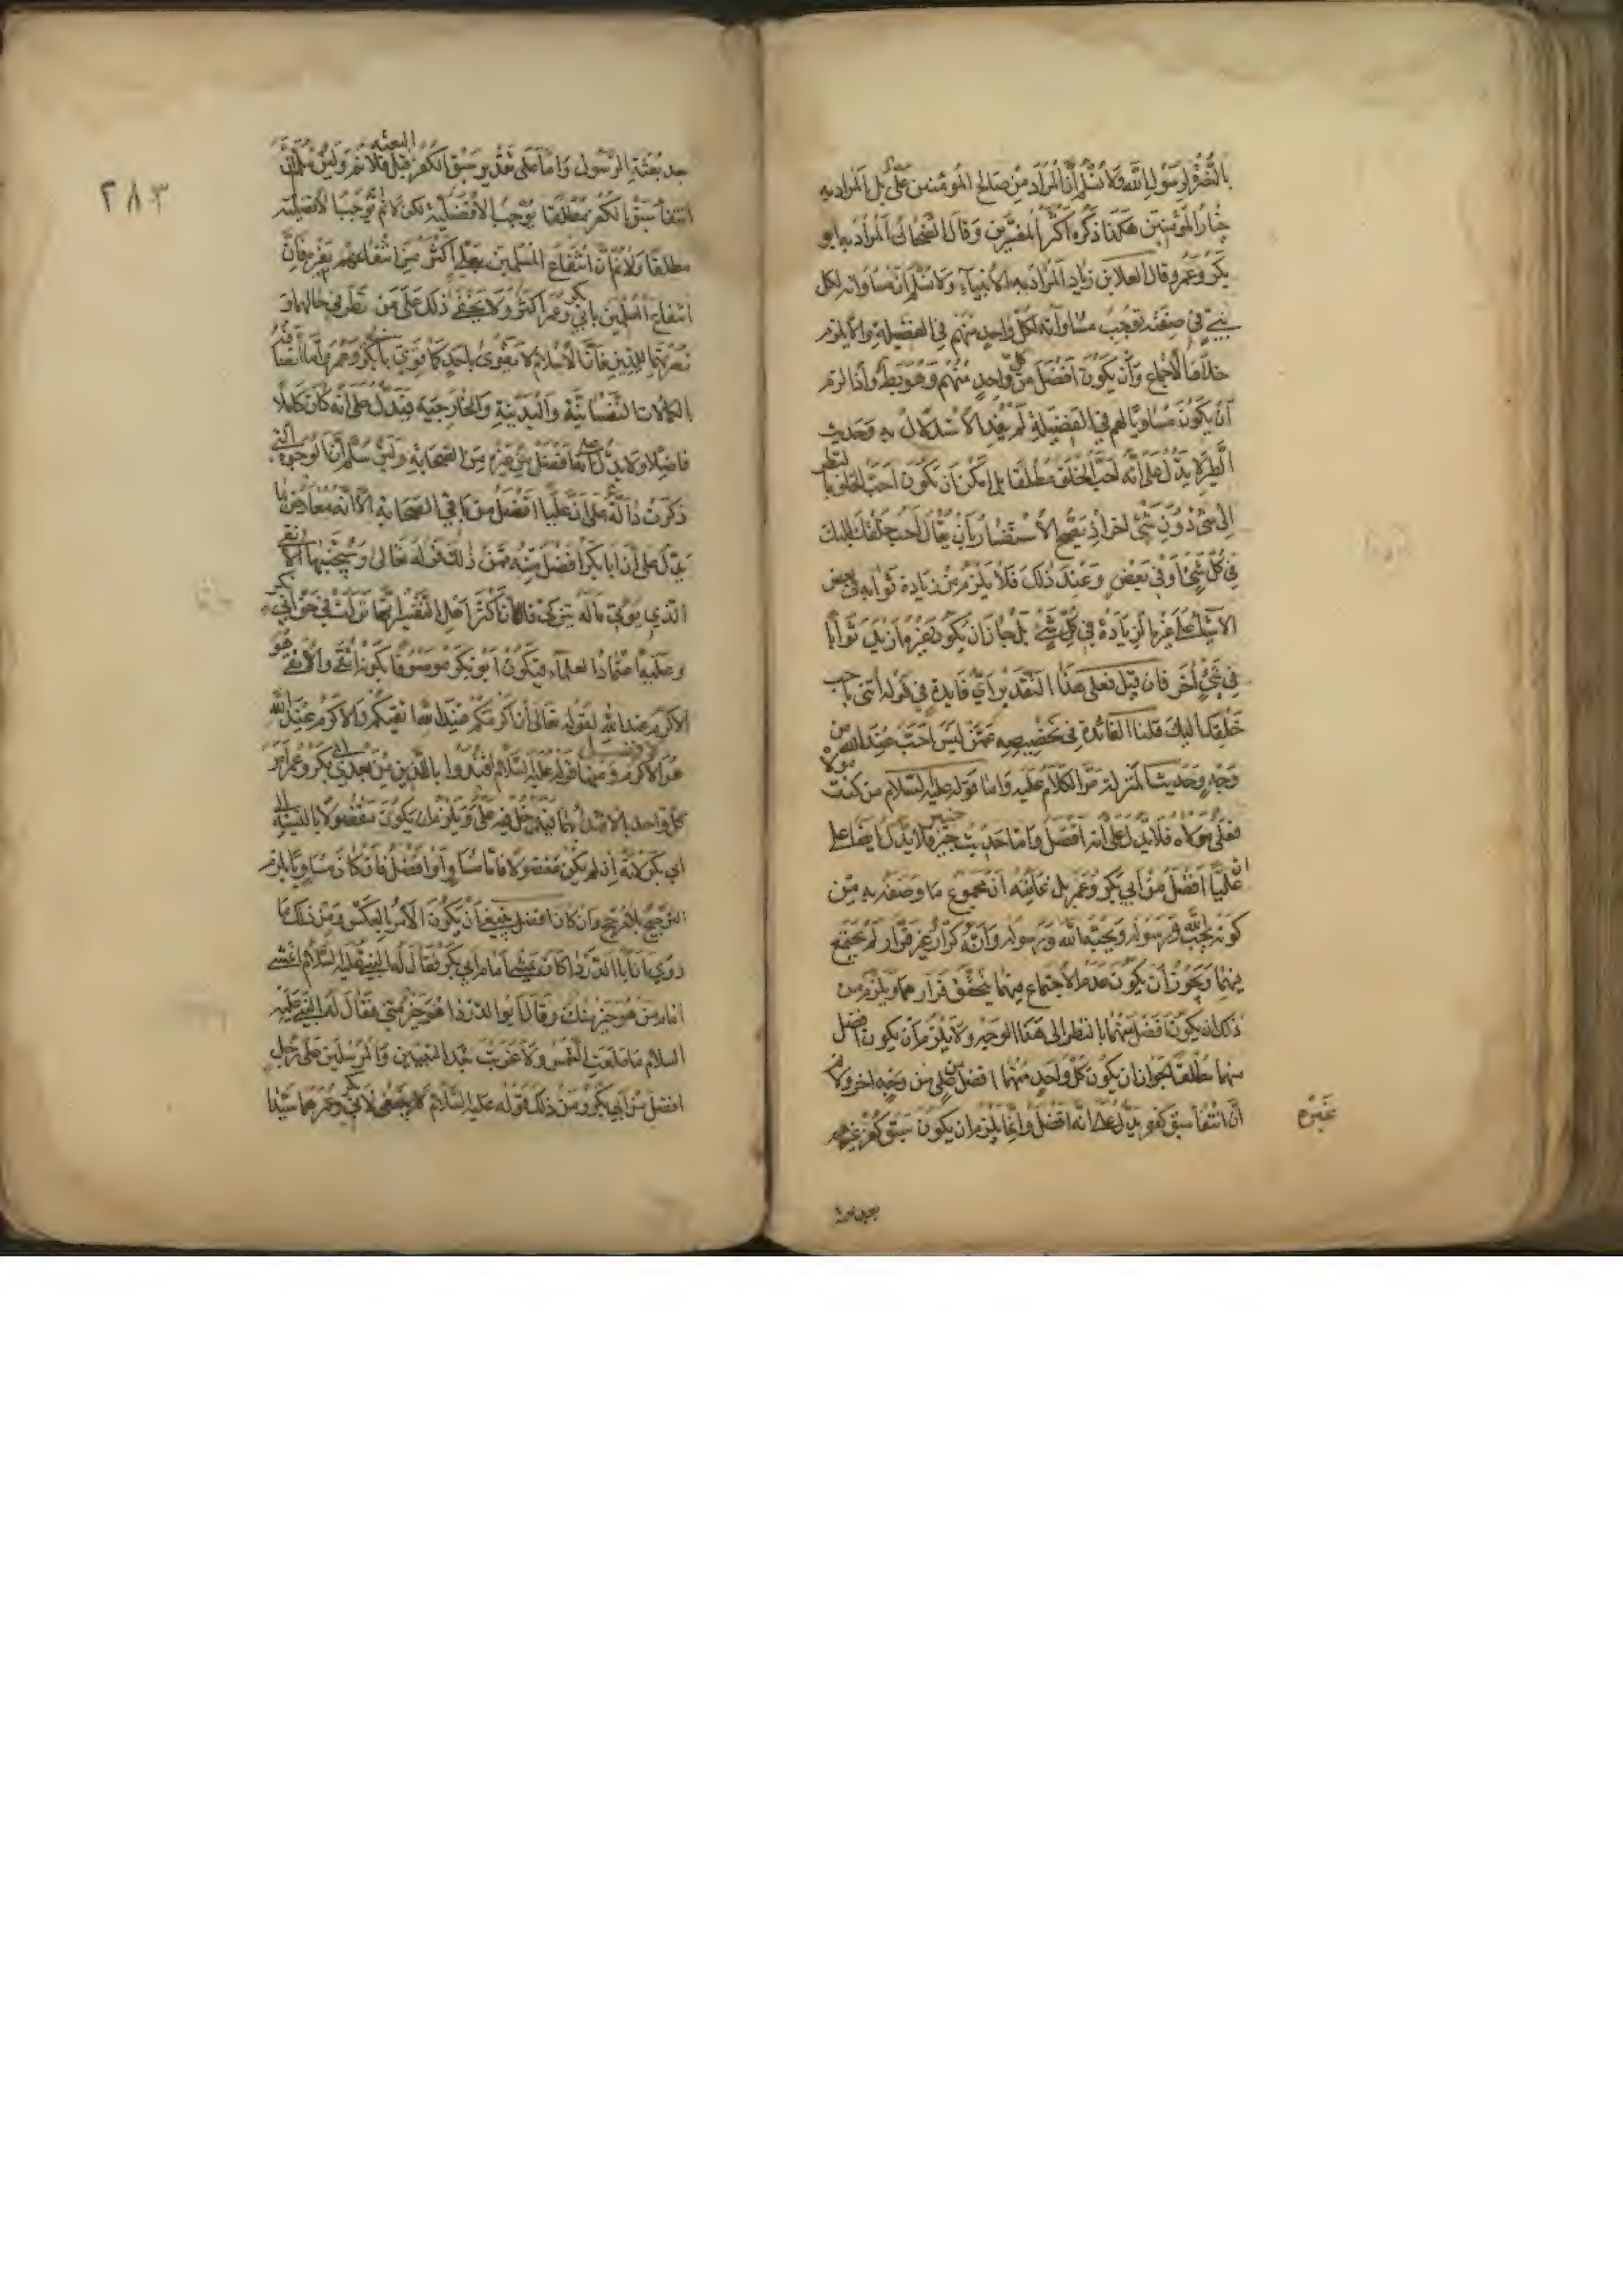 بالنصرة لرسول الله ولا نسلم أن المراد من صالح المؤمنين علي بل المراد به
خيار المؤمنين هكذا ذكره أكثر المفسرين وقال الضحاك المراد به ابو
بكر وعمر وقال العلا بن زياد المراد به الأنبياء ولا نسلم أن مساواته لكل
نبي في صفته توجب مساواته لكل واحد منهم في الفضيلة والا يلزم
خلاف الاجماع وأن يكون افضل من كل واحد منهم وهو بط واذا لزم
أن يكون مساويا لهم في الفضيلة لم يفد الاستدلال به وحديث
الطير لا يدل على أنه احب الخلق مطلقا بل امكن ان يكون احب الخلق بالنظر
الى شئ دون شئ اخر اذ يصح الاستفسار بأن يقال احب خلقك اليك
في كل شئ أو في بعض وعند ذلك فلا يلزم من زيادة ثوابه في بعض
الاشيا على غيره الزيادة في كل شئ بل جاز ان يكون غيره ازيد ثوابا
في شئ اخر فان قيل فعلى هذا التقدير اي فايدة في قوله ائتني باحب
خلقك اليك قلنا الفائدة في تخصيصه عمن ليس احب عند الله من
وجه وحديث المنزلة مر الكلام عليه واما قوله عليه السلام من كنت مولاه
فعلي مولاه فلا يدل على أنه افضل واما حديث خيبر فلا يدل ايضا على
ان عليا افضل من ابي بكر وعمر بل غايته ان مجموع ما وصفه به من
كونه يحب الله ورسوله ويحبه الله ورسوله وانه كرار غير فرار لم يجتمع
فيهما ويجوز أن يكون عدم الاجتماع فيهما بتحقق فرارهما ويلزم من
ذلك ان يكون افضل منهما بالنظر الى هذا الوجه ولا يلزم أن يكون افضل
منهما مطلقا لجواز ان يكون كل واحد منهما افضل من علي من وجه اخر ولا نم
أن انتفا سبق كفره يدل على انه افضل وانما يلزم ان يكون سبق كفر غيره
غيره
بعد بعثة
٢٨٣
بعد بعثة الرسول واما على تقدير سبق الكفر قبل البعثه فلا نم ولين سلم أن
انتفا سبق الكفر مطلقا يوجب الأفضلية لكن لا نم توجب الافضلية
مطلقا ولا نم ان انتفاع المسلمين بعلي اكثر من انتفاعهم بغيره فان
انتفاع المسلمين بابي بكر وعمر اكثر ولا يخفى ذلك على من نظر في حالهما و
نصرتهما للدين فان الأسلام لا يقوى باحد كما قوي بأبي بكر وعمر واما اتصافه
بالكمالات النفسانية والبدنية والخارجية فيدل على انه كان كاملا
فاضلا ولا يدل على انه افضل من غيره من الصحابة ولين سلم أن الوجوه التي
ذكرت دالة على أن عليا افضل من باقي الصحابة الا انه معارض بما
يدل على أن ابا بكر افضل منه فمن ذلك قوله تعالى وسيجنبها الاتقى
الذي يؤتي ماله يتزكى فان اكثر اهل التفسير انها نزلت في حق ابي بكر
وعليه اعتماد العلماء فيكون ابو بكر موصوفا بكونه اتقى والاتقى هو
الاكرم عند الله لقوله تعالى أن اكرمكم عند الله اتقيكم والاكرم عند الله
هو الافضل ومنها قوله عليه السلام اقتدوا بالذين من بعدي ابي بكر وعمر امر
كل واحد بالاقتدا بهما فيدخل فيه علي ويلزم ان يكون مفضولا بالنسبة الى
ابي بكر لانه اذ لم يكن مفضولا فاما مساو او افضل فان كان مساويا يلزم
الترجيح بلا مرجح وان كان افضل فينبغي أن يكون الأمر بالعكس ومن ذلك ما
روي أن ابا الدرداء كان يمشي امام ابي بكر فقال له النبي عليه السلام اتمشي
امام من هو خير منك وقال ابو الدردا اهو خير مني فقال له النبي عليه
السلام ما طلعت الشمس ولا غربت بعد النبيين والمرسلين على رجل
افضل من ابي بكر ومن ذلك قوله عليه السلام لابي بكر وعمر هما سيدا